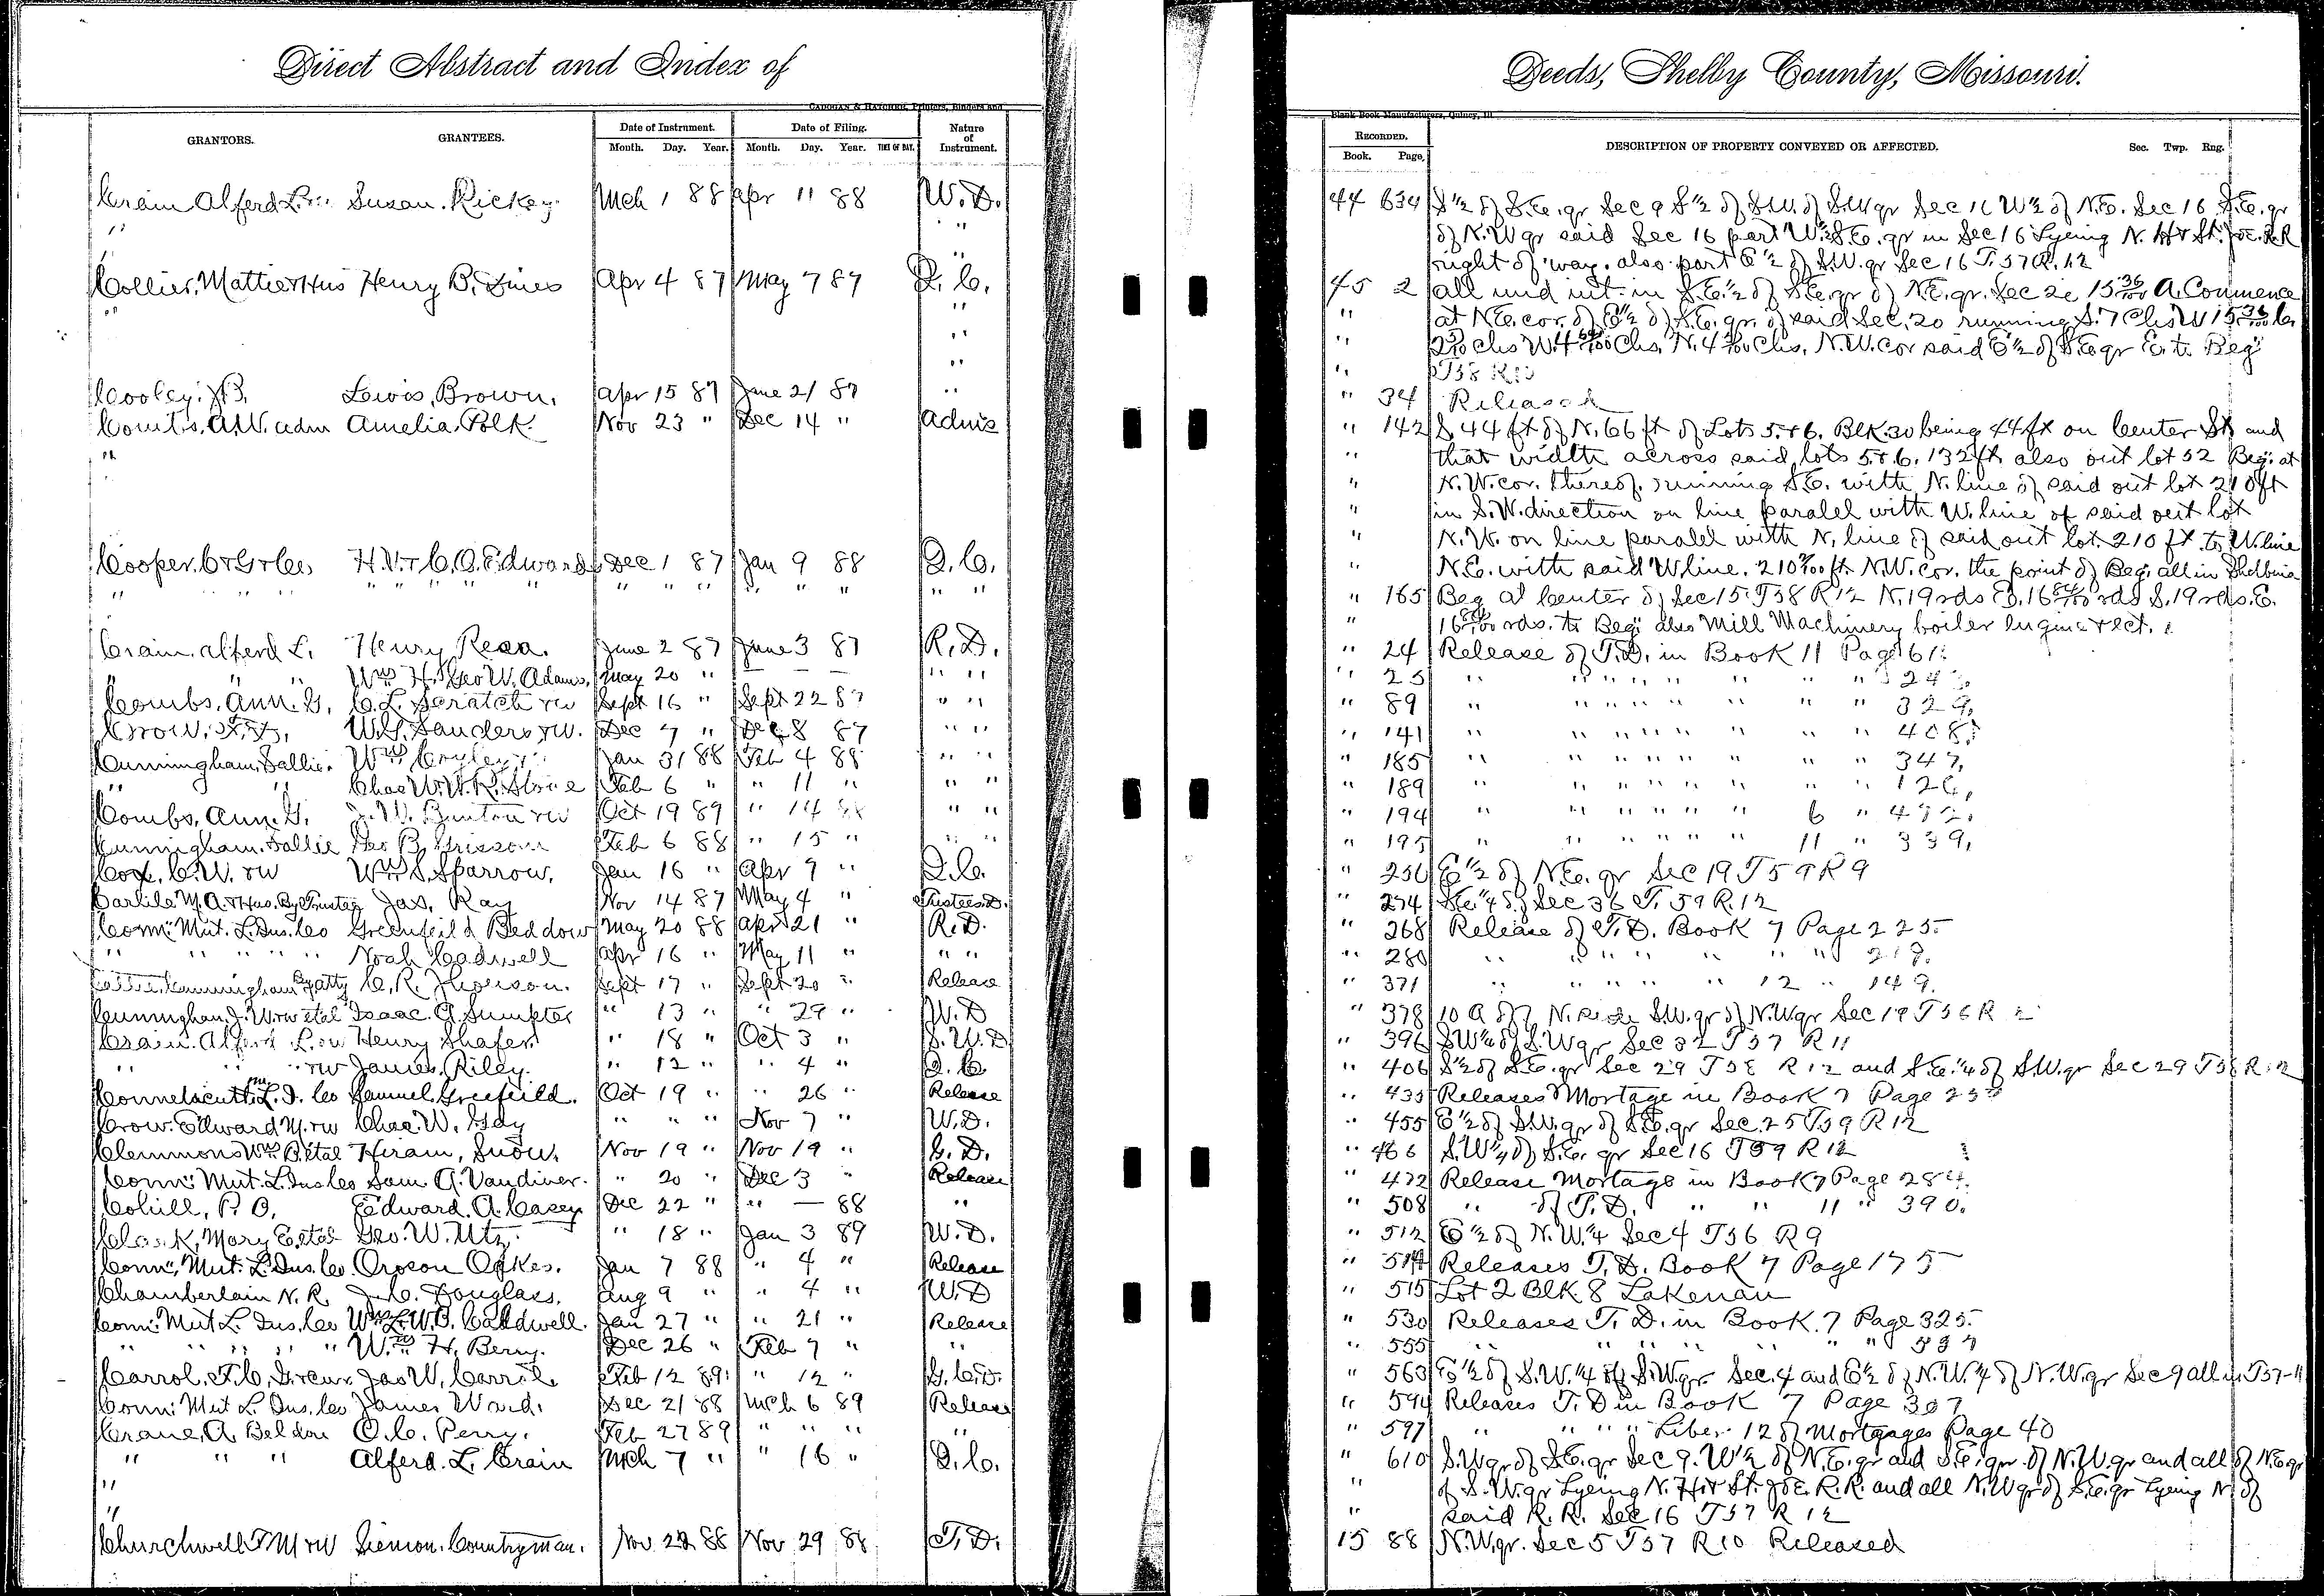 Direct Abstract and Index of
Deeds, Shelby County, Missouri.
CADOGAN & HATCHER, Printers, Binders and
Blank Book Manufacturers, Quincy, Ill.
GRANTORS. GRANTEES. Date of Instrument. Date of Filing. Nature of Instrument.
Month. Day. Year. Month. Day. Year. TIME OF DAY.
RECORDED. DESCRIPTION OF PROPERTY CONVEYED OR AFFECTED. Sec. Twp. Rng.
Book. Page.
Crain Alferd L. Susan Rickey Mch 1 88 Apr 11 88 W.D. 44 634 S½ of S.E. qr Sec 9 S½ of S.W. of S.W qr Sec W½ of N.E. Sec 16 S.E. qr
" " of N.W qr said Sec 16 part W½ S.E. qr in Sec 16 Lyeing N. H & St. Joe. R.R
" right of way. also part E½ of S.W. qr Sec 16 T. 57 R. 12
Collier, Mattie & Hus Henry B. Apr 4 87 May 7 87 Q.C. 45 2 all und int. in S.E. ½ of S.E. qr of N.E. qr. Sec 20 15 36/100 A. Commence
" " " at N.E. cor. of E½ of S.E. qr. of said Sec. 20 running S. 7 Chs W 15 36/100
" " Chs W. Chs. N. Chs. N.W. cor said E½ of S.E qr E. to Beg
" " T58
Cooley, Lewis Brown. Apr 15 87 June 21 87 " " 34 Released
A.W. adm Amelia Polk. Nov 23 " Dec 14 " Adm's " 142 S. 44 ft of N. 66 ft of Lots 5 & 6. Blk. 30 being 44 ft on Center St and
" " that width across said lots 5 & 6. 132 ft. also out lot 52 Beg. at
" N.W. cor. thereof. running S.E. with N. line of said out lot 210 ft
" in S.W. direction on line paralel with W. line of said out lot
" N.W. on line paralel with N. line of said out lot. 210 ft. to W. line
" N.E. with said W line. 210 ft. N.W. cor. the point of Beg. all in Shelbina
Cooper. & Co H.V. & C.A. Edwards Dec 1 87 Jan 9 88 Q.C.
" " " " " " " " " " " " " " " " 165 Beg at Center of Sec 15. T58 R12 N. 19 rds W. 16 rds S. 19 rds. E.
" 16 rds. to Beg. also Mill Machinery boiler Engine & ect.
Crain, Alferd L. Henry Rea June 2 87 June 3 87 R.D. " 24 Release of T.D. in Book 11 Page 61.
" " Wm H. Geo W. Adams. May 20 " — — " " " 25 " " " " " " " 243.
Combs, Ann. G. C.L. Scratch & w Sept 16 " Sept 22 87 " " " 89 " " " " " " " 329.
Crow, W.G. Sanders & w. Dec 7 " Dec 8 87 " " " 141 " " " " " " " 408.
Cunningham, Sallie. Wm Jan 31 88 Feb 4 88 " " " 185 " " " " " " " 347.
" " Chas W. W.R. Feb 6 " " 11 " " " " 189 " " " " " " " 126.
Combs, Ann. G. J.W. & w Oct 19 89 " 14 88 " " " 194 " " " " " 6 "
Cunningham, Sallie Geo B. Grissom Feb 6 88 " 15 " " " " 195 " " " " " 11 " 339.
Cox, C.W. & w Wm S. Sparrow. Jan 16 " Apr 9 " Q.C. " 256 E½ of N.E. qr Sec 19 T59 R9
Carlile M.A. & Hus. By Trustee Jas. Ray Nov 14 87 May 4 " Trustees D. " 274 S.E. ¼ of Sec 36 T. 59 R. 12
Conn. Mut. L. Ins. Co Greenfeild Beddow May 20 88 Apr 21 " R.D. " 268 Release of T.D. Book 7 Page 225.
" " " " Noah Cadwell Apr 16 " May 11 " " " " 280 " " " " " " 219.
Cunningham By atty C.R. Sept 17 " Sept 20 " Release " 371 " " " " " 12 " 149.
Cunningham, J.W. & w etal Isaac. A. Sumpter " 13 " " 29 " W.D " 378 10 A off N. side S.W. qr of N.W qr Sec 19 T56 R
Crain. Alferd L. & w Henry Shafer " 18 " Oct 3 " S.W.D " 396 SW¼ of S.W qr Sec 32 T57 R 11
" " & w James Riley. " 12 " " 4 " Q.C. " 406 S½ of S.E. qr Sec 29 T58 R 12 and S.E. ¼ of S.W. qr Sec 29 T58 R 12
Connetacutt Mu. L. I. Co Samuel Greefeild. Oct 19 " " 26 " Release " 435 Releases Mortage in Book 7 Page
Crow. Edward M. & w Chas. W. Gay " " " Nov 7 " W.D. " 455 E½ of S.W. qr of S.E. qr Sec. 25 T59 R 12
Clemmons Wm B. etal Hiram, Snow. Nov 19 " Nov 19 " G.D. " 466 S.W¼ of S.E. qr Sec 16 T59 R 12
Conn. Mut. L. Ins Co Sam A. Vandiver. " 20 " Dec 3 " Release " 472 Release Mortage in Book 7 Page 284.
Cohill, P. O. Edward. A. Casey. Dec 22 " " — 88 " " 508 " of T.D. " " 11 " 390.
Clark, Mary E. etal Geo. W. Utz. " 18 " Jan 3 89 W.D. " 512 E½ of N.W. ¼ Sec 4 T56 R9
Conn. Mut. L. Ins. Co. Oroson Oakes. Jan 7 88 " 4 " Release " 514 Releases T.D. Book 7 Page 175
Chamberlain N.R. J.C. Douglass. Aug 9 " " 4 " W.D " 515 Lot 2 Blk 8 Lakenan
Conn. Mut L. Ins. Co Wm L. W.B. Caldwell. Jan 27 " " 21 " Release " 530 Releases T. D. in Book. 7 Page 325.
" " " " " Wm H. Berry. Dec 26 " Feb 7 " " " 555 " " " " " " "
Carrol, F.C. Jas W. Carrol Feb 12 89 " 12 " G.C.D. " 563 E½ of S.W. ¼ of S.W. qr Sec. 4 and E½ of N.W. ¼ of N.W. qr Sec 9 all in T57-11
Conn. Mut L. Ins. Co James Ward. Dec 21 88 Mch 6 89 Release " 594 Releases T. D in Book 7 Page 307
Crane, A. Beldon O.C. Perry. Feb 27 89 " " " " " 597 " " " Liber 12 of Mortgages Page 40
" " " Alferd. L. Crain Mch 7 " " 16 " Q.C. " 610 S.W qr of S.E. qr Sec 9. W½ of N.E. qr and S.E. qr of N.W. qr and all of N.E qr
" " of S.W. qr Lyeing N. H & St. Joe. R.R. and all N.W qr of S.E. qr Lyeing N. of
" " said R.R. Sec 16 T57 R 12
Churchwell T M & w Siemon. Countryman. Nov 28 88 Nov 29 88 T.D. 15 88 N.W. qr. Sec 5 T57 R10 Released